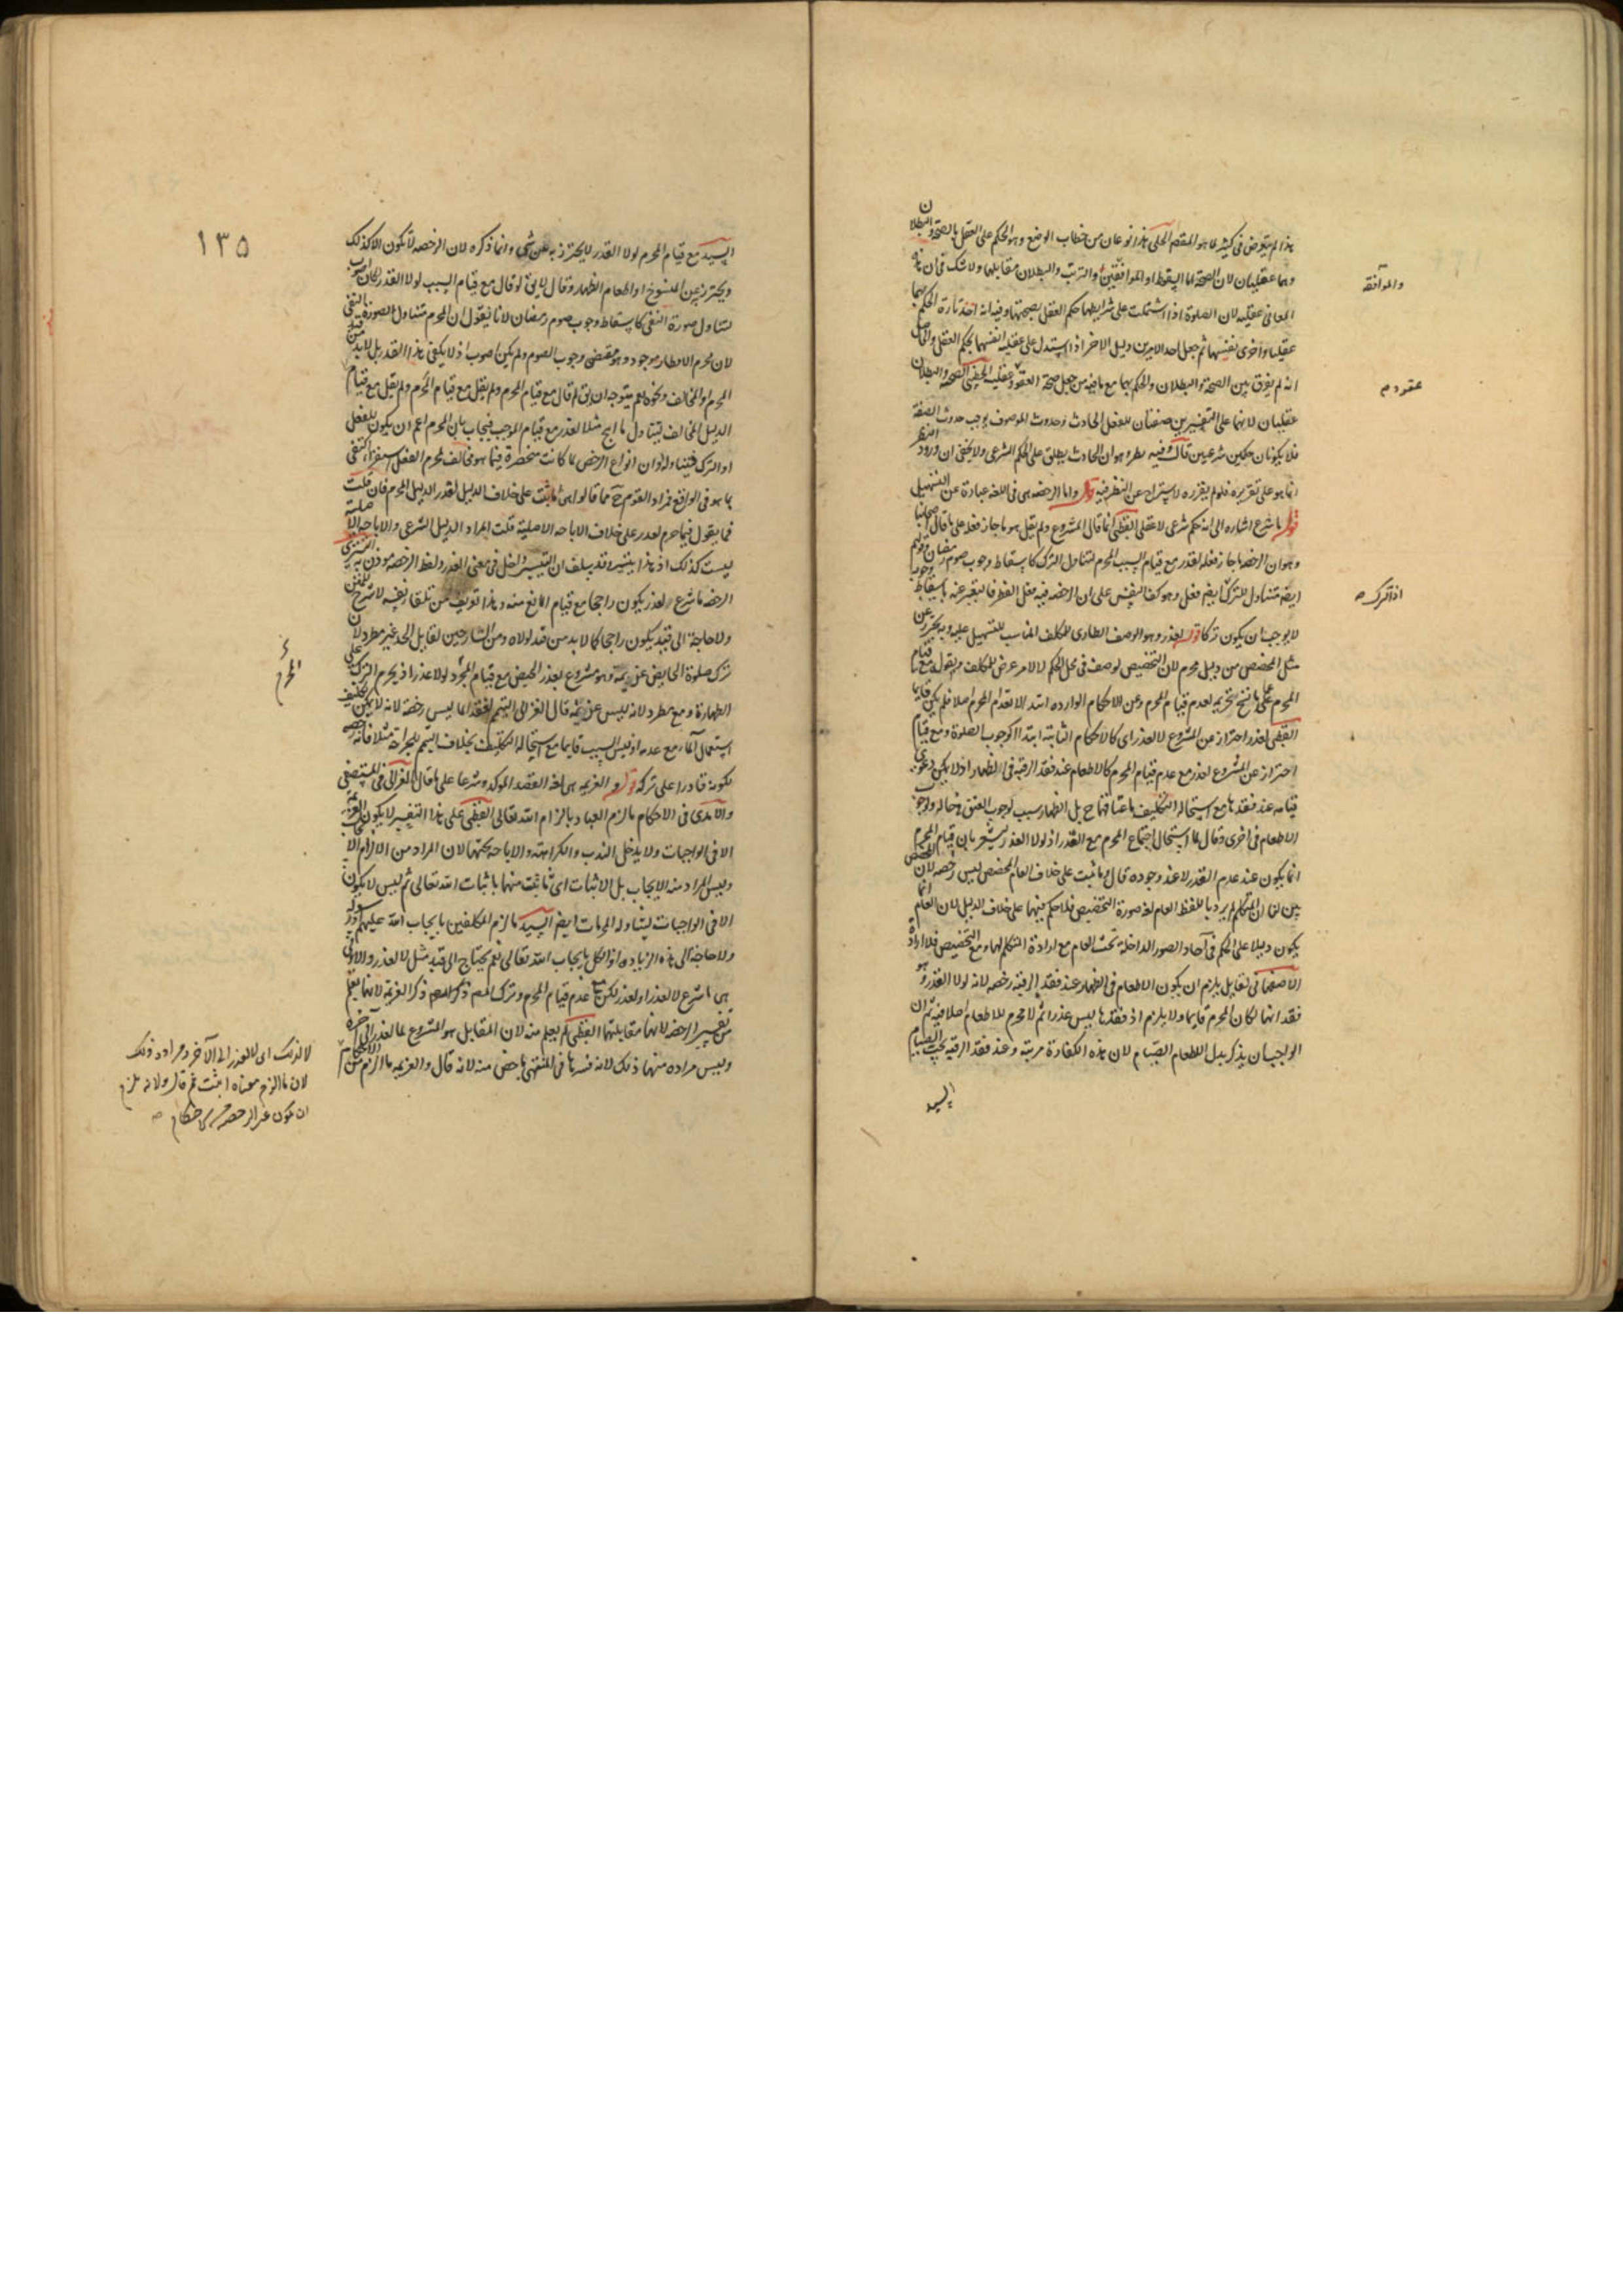 هذا لم يتعرض في كثير مما هو المقصد الحلي هذا نوعان من خطاب الوضع وهو الحكم على العقل بالصحة والبطلان
وهما عقليان لان الصحة اما اسقاط او الموافقة والترتب والبطلان مقابلها ولا شك في ان هذه
المعاني عقلية لان الصلوة اذا اشتملت على شرايطها حكم العقل بصحتها وفيه انه اخذ تارة الحكم بهما
عقليا واخرى نفسهما ثم جعل احد الامرين دليل الاخر اذ استدل على عقلية انفسهما بحكم العقل
انه لم يفرق بين الصحة والبطلان والحكم بهما مع ما فيه من جعل صحة العقود عقلية الصحة والبطلان
عقليان لانهما على التفسيرين صفتان للفعل الحادث وحدوث الموصوف يوجب حدوث الصفة
فلا يكونان حكمين شرعيين قال وفيه نظر وهو ان الحادث يطلق على الحكم الشرعي ولا يخفى ان ورود النظر
انما هو على تقريره فلو لم يقرره لاستراح عن النظر فيه قوله واما الرخصة هي في اللغة عبارة عن التسهيل
قوله ما شرع اشارة الى انه حكم شرعي لا عقلي القطبي انما قال المشروع ولم يقل هو ما جاز فعله على ما قال اصحابنا
وهو ان الرخصة ما جاز فعله لعذر مع قيام السبب المحرم لتناول الترك كاسقاط وجوب صوم رمضان
ايضا متناول للترك ايضا فعل وهو كف النفس على ان الرخصة فيه فعل الفطر فالتعبير عنه باسقاط
لا يوجب ان يكون تركا قوله لعذر وهو الوصف الطاري للمكلف المناسب للتسهيل عليه وبه يحترز عن
مثل المخصص من دليل محرم لان التخصيص لوصف في محل الحكم لا لامر عرض للمكلف وبقوله مع قيام
المحرم عما نسخ تحريمه لعدم قيام المحرم وعن الاحكام الواردة ابتداء لانعدام المحرم اصلا فلم يكن قايما
القطبي لعذر احتراز عن المشروع لا لعذر اي كالاحكام الثابتة ابتداء كوجوب الصلوة ومع قيام
احتراز عن المشروع لعذر مع عدم قيام المحرم كالاطعام عند فقد الرقبة في الظهار اذ لا يمكن دعوى
قيامه عند فقدها مع استحالة التكليف باعتاقها ح بل الظهار سبب لوجوب العتق في حالة ولوجوب
الاطعام في اخرى وقال لما استحال اجتماع المحرم مع العذر اذ لولا العذر يشعر بان قيام المحرم
انما يكون عند عدم العذر لا عند وجوده قال وما ثبت على خلاف العام المخصص ليس رخصة لان المخصص
بين لنا ان المتكلم لم يرد باللفظ العام لغة صورة التخصيص فلا حكم فيها على خلاف الدليل لان العام انما
يكون دليلا على الحكم في آحاد الصور الداخلة تحت العام مع ارادة المتكلم لها ومع التخصيص فلا ارادة
الاصفهاني لقايل يلزم ان يكون الاطعام في الظهار عند فقد الرقبة رخصة لانه لولا العذر وهو
فقدانها لكان المحرم قايما ولا يلزم اذ فقدها ليس عذرا ثم لا محرم للاطعام اصلا فيه ثم ان
الواجب ان يذكر بدل الاطعام الصيام لان هذه الكفارة مرتبة وعند فقد الرقبة يجب الصيام
السيد
والموافقة
عقود م
اذ الترك
١٣٥
السيد مع قيام المحرم لولا العذر لا يحترز به عن شي وانما ذكره لان الرخصة لا تكون الا كذلك
ويحترز عن المنسوخ او اطعام الظهار وقال لو قال مع قيام السبب لولا العذر لكان اصوب
لتناول صورة النفي كاسقاط وجوب صوم رمضان لانا نقول ان المحرم متناول لصورة النفي
لان محرم الافطار موجود وهو مقتضى وجوب الصوم ولم يكن اصوب اذ لا يكفي هذا القدر بل لا بد من قيد
المحرم او المخالف ونحوه نعم يتوجه ان يق لم قال مع قيام المحرم ولم يقل مع قيام
الدليل المخالف ليتناول ما ابيح مثلا لعذر مع قيام الموجب فيجاب بان المحرم اعم ان يكون للفعل
او الترك فيتناوله او ان انواع الرخص لما كانت منحصرة فيما هو مخالف لمحرم الفعل اكتفى
بما هو في الواقع فمراد القوم ح مما قالوا هي ما ثبت على خلاف الدليل لعذر الدليل المحرم فان قلت
فما يقول فيما حرم لعذر على خلاف الاباحة الاصلية قلت المراد الدليل الشرعي والاباحة الاصلية
ليست كذلك اذ التيسير داخل في معنى العذر ولفظ الرخصة موذن به
الرخصة ما شرع لعذر يكون راجحا مع قيام المانع منه وهذا تعريف من تلقاء نفسه لا شرح للمتن
ولا حاجة الى قيد يكون راجحا كما لا بد من قيد لولاه ومن الشارحين لقايل الحد غير مطرد لان
ترك صلوة الحايض عزيمة وهو مشروع لعذر الحيض مع قيام المحرم لولا عذر اذ يحرم الترك على
الطهارة ومع مطرد لانه ليس عزيمة قال الغزالي التيمم لفقد الما ليس رخصة لانه لا يمكن تكليف
استعمال الماء مع عدمه اذ ليس السبب قايما مع استحالة التكليف بخلاف التيمم لجراحة مثلا فانه رخصة
لكونه قادرا على تركه قوله والعزيمة هي لغة القصد الموكد وشرعا على ما قال الغزالي في المستصفى
والآمدي في الاحكام ما لزم العباد بالزام الله تعالى القطبي على هذا التفسير لا يكون العزيمة
الا في الواجبات ولا يدخل الندب والكراهة والاباحة تحتها لان المراد من الالزام
وليس المراد منه الايجاب بل الاثبات اي ما ثبت منها باثبات الله تعالى ثم ليس لا يكون
الا في الواجبات لتناوله المحرمات ايضا السيد ما لزم المكلفين بايجاب الله عليهم
ولا حاجة الى هذه الزيادة اذ الكل بايجاب الله تعالى نعم يحتاج الى قيد مثل لا لعذر والاولى
هي ما شرع لا لعذر او لعذر لكن مع عدم قيام المحرم وترك المص ذكر العزيمة لانها يعلم
من تفسير الرخصة لانها مقابلتها القطبي لم يعلم منه لان المقابل هو المشروع لما لعذر الى آخره
وليس مراده منها ذلك لانه فسرها في المنتهى باخص منه لانه قال والعزيمة ما الزم من الاحكام
المحرم
لا لذلك اي لا لعذر الى الآخر ومراده ذلك
لان ما الزم معناه اثبت ثم قال ولانه يلزم
ان يكون غير الرخصة